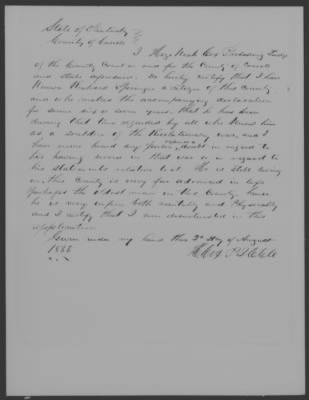 State of Kentucky
County of Carroll
I Hugh Cox Presiding Judge
of the County Court in and for the County of Carroll
and State aforesaid do hereby certify that I have
known Richard Sprenger a citizen of this County
and who makes the accompanying declaration
for some six or seven years, that he has been
during that time regarded by all who knew him
as a soldier of the Revolutionary war, and I
have never heard any person express a doubt in regard to
his having served in that war or in regard to
his statements relative to it. He is still living
in this County is very far advanced in life
perhaps the oldest man in this County hence
he is very infirm both mentally and Physically
and I certify that I am disinterested in this
application
Given under my hand this 3rd Day of August
H. Cox P.J.C.C.C.